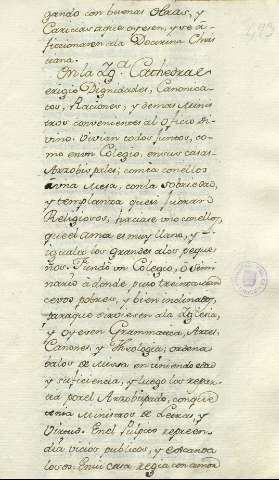 gando con buenas Obras, y
Caricias a que oyesen, y se a
ficcionaren ala Doctrina Chris
tiana.
En la Yg.ª Cathedral e
erigio Dignidades, Canonica
tos, Raciones, y demas Minis
tros convenientes al Oficio Di
vino. Vivian todos juntos, co
mo en vn Colegio, en sus casas
Arzobispales; comia con ellos
a vna Mesa, con la sobriedad
y templanza que si fueran
Religiosos, haciase vno con ellos,
que el amor es muy llano, y
iguala los grandes a los peque
ños. Fundó vn Colegio, o Semi
nario adonde puso treinta man
cevos pobres, y bien inclinados,
para que sirviesen ala Yglesia,
y oyesen Grammatica, Artes,
Canones, y Theologia; ordena
balos de Missa en teniendo edad
y suficiencia, y luego los repar
tia por el Arzobispado, con que
tenia Ministros de Letras, y
Virtud. En el Pulpito reprehen
dia vicios publicos, y escanda
losos. En su casa regia con amor